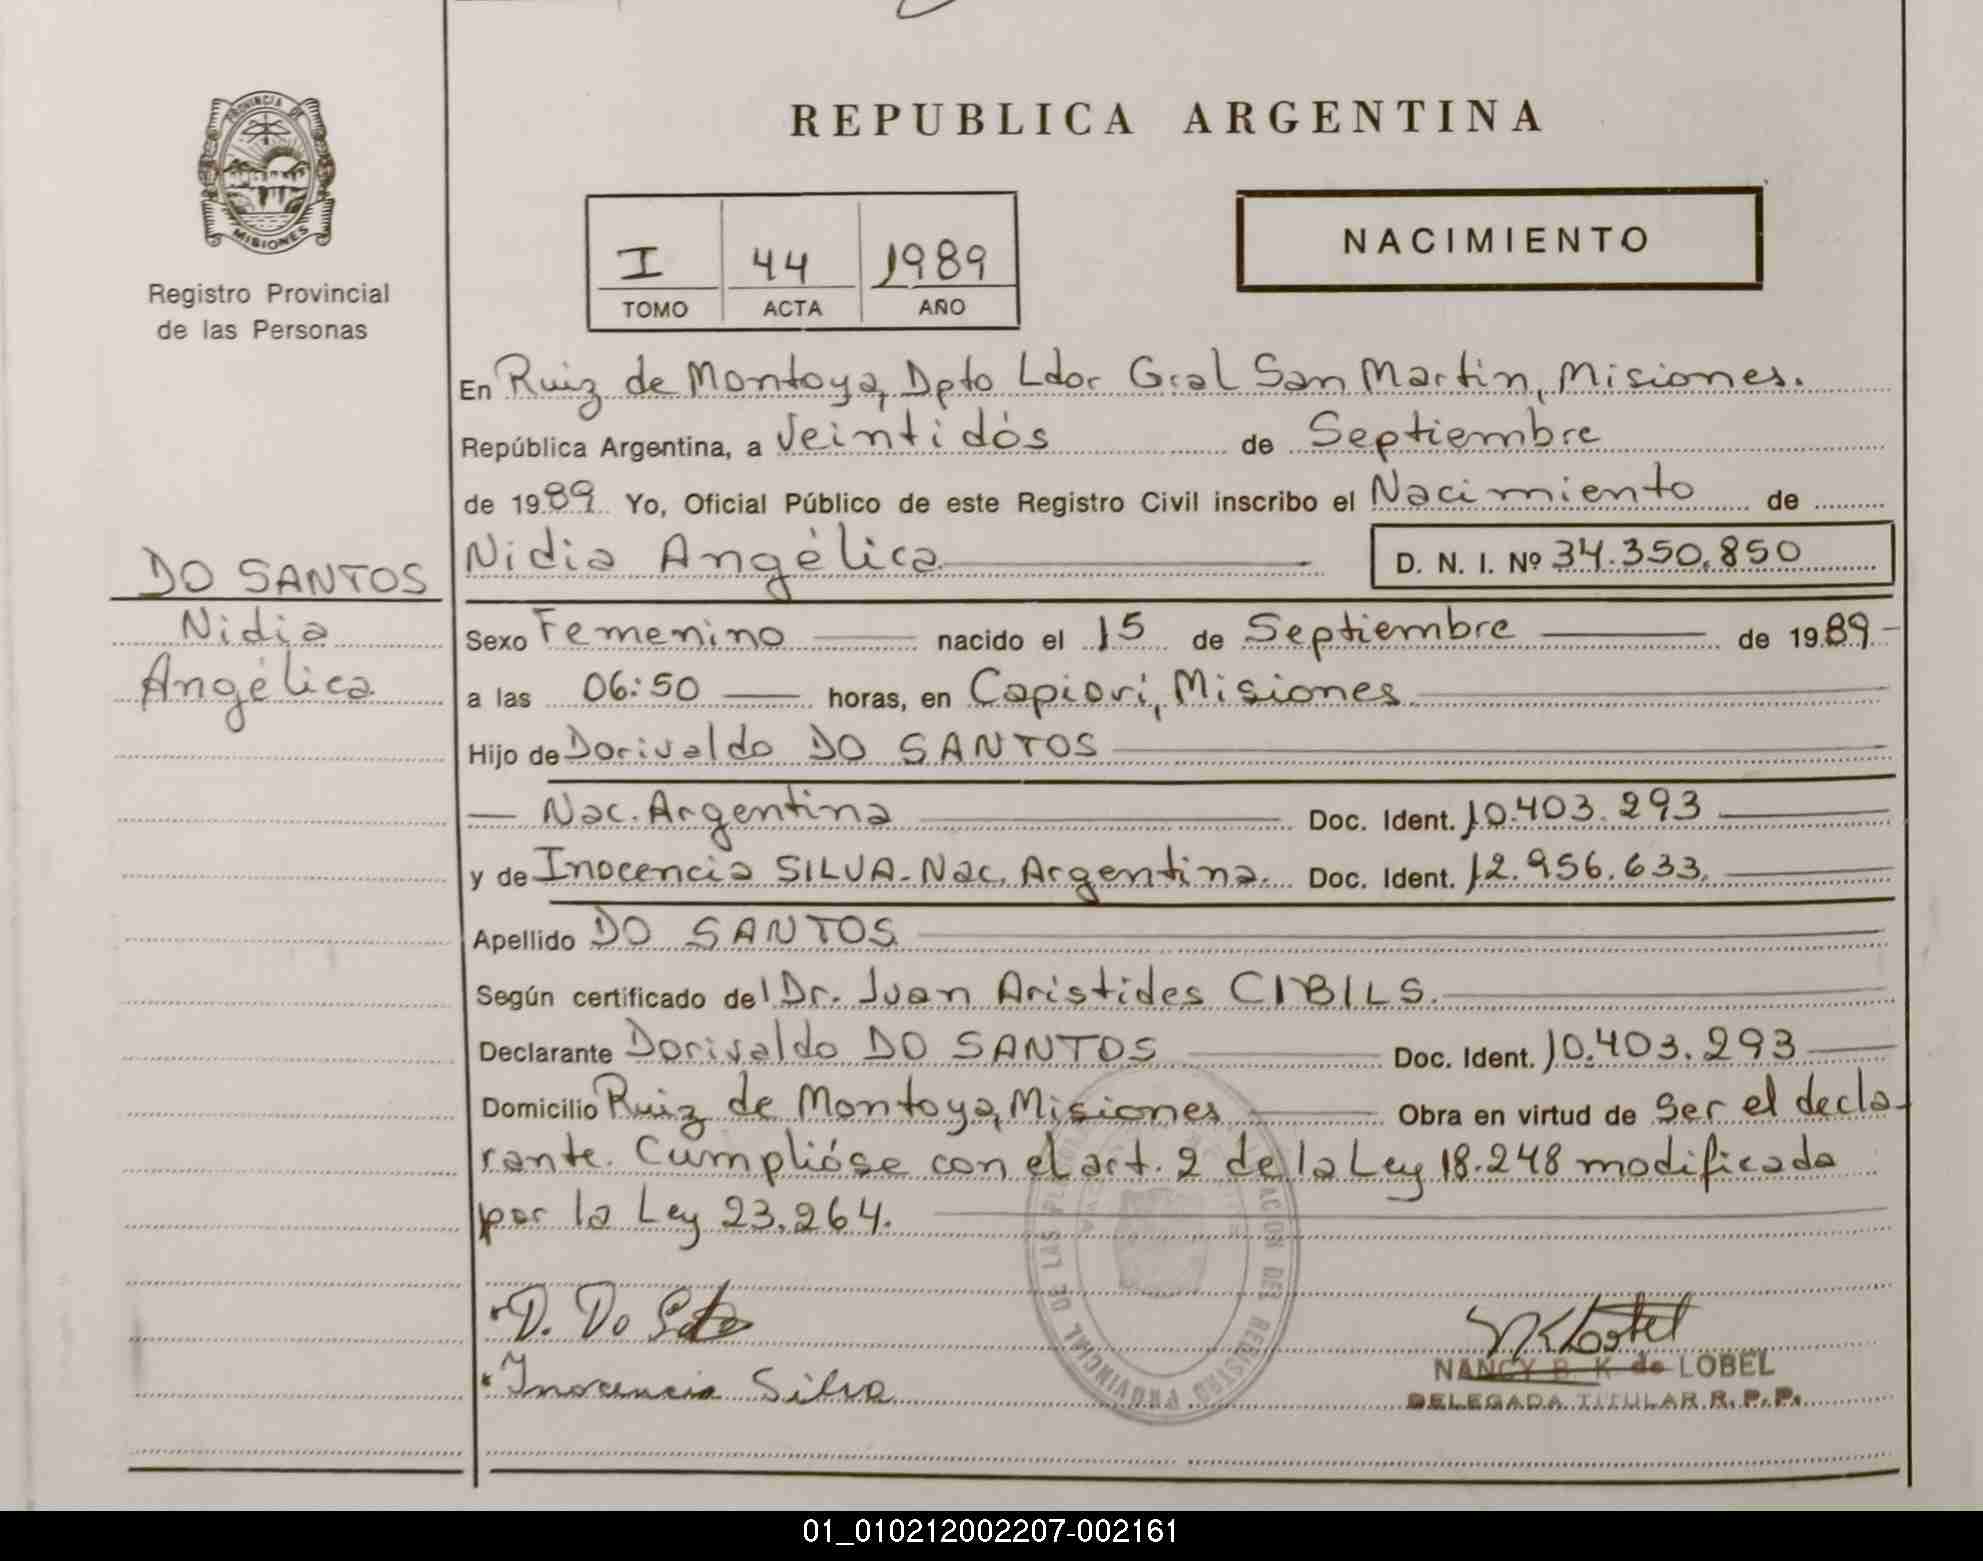 REPUBLICA ARGENTINA
PROVINCIA DE
MISIONES
Registro Provincial
de las Personas
I 44 1989
TOMO ACTA AÑO
NACIMIENTO
En Ruiz de Montoya, Dpto Ldor Gral San Martin, Misiones.
República Argentina, a Veintidós de Septiembre
de 1989 Yo, Oficial Público de este Registro Civil inscribo el Nacimiento de
DO SANTOS
Nidia
Angélica
Nidia Angélica D. N. I. Nº 34.350.850
Sexo Femenino nacido el 15 de Septiembre de 1989-
a las 06:50 horas, en Capioví, Misiones
Hijo de Dorivaldo DO SANTOS
— Nac. Argentina Doc. Ident. 10.403.293
y de Inocencia SILVA-Nac. Argentina. Doc. Ident. 12.956.633.
Apellido DO SANTOS
Según certificado del Dr. Juan Aristides CIBILS.
Declarante Dorivaldo DO SANTOS Doc. Ident. 10.403.293
Domicilio Ruiz de Montoya, Misiones Obra en virtud de ser el decla-
rante. Cumplióse con el art. 2 de la Ley 18.248 modificada
por la Ley 23.264.
D. Do
Inocencia Silva
NANCY B. K de LOBEL
DELEGADA TITULAR R.P.P.
REGISTRO PROVINCIAL DE LAS
01_010212002207-002161